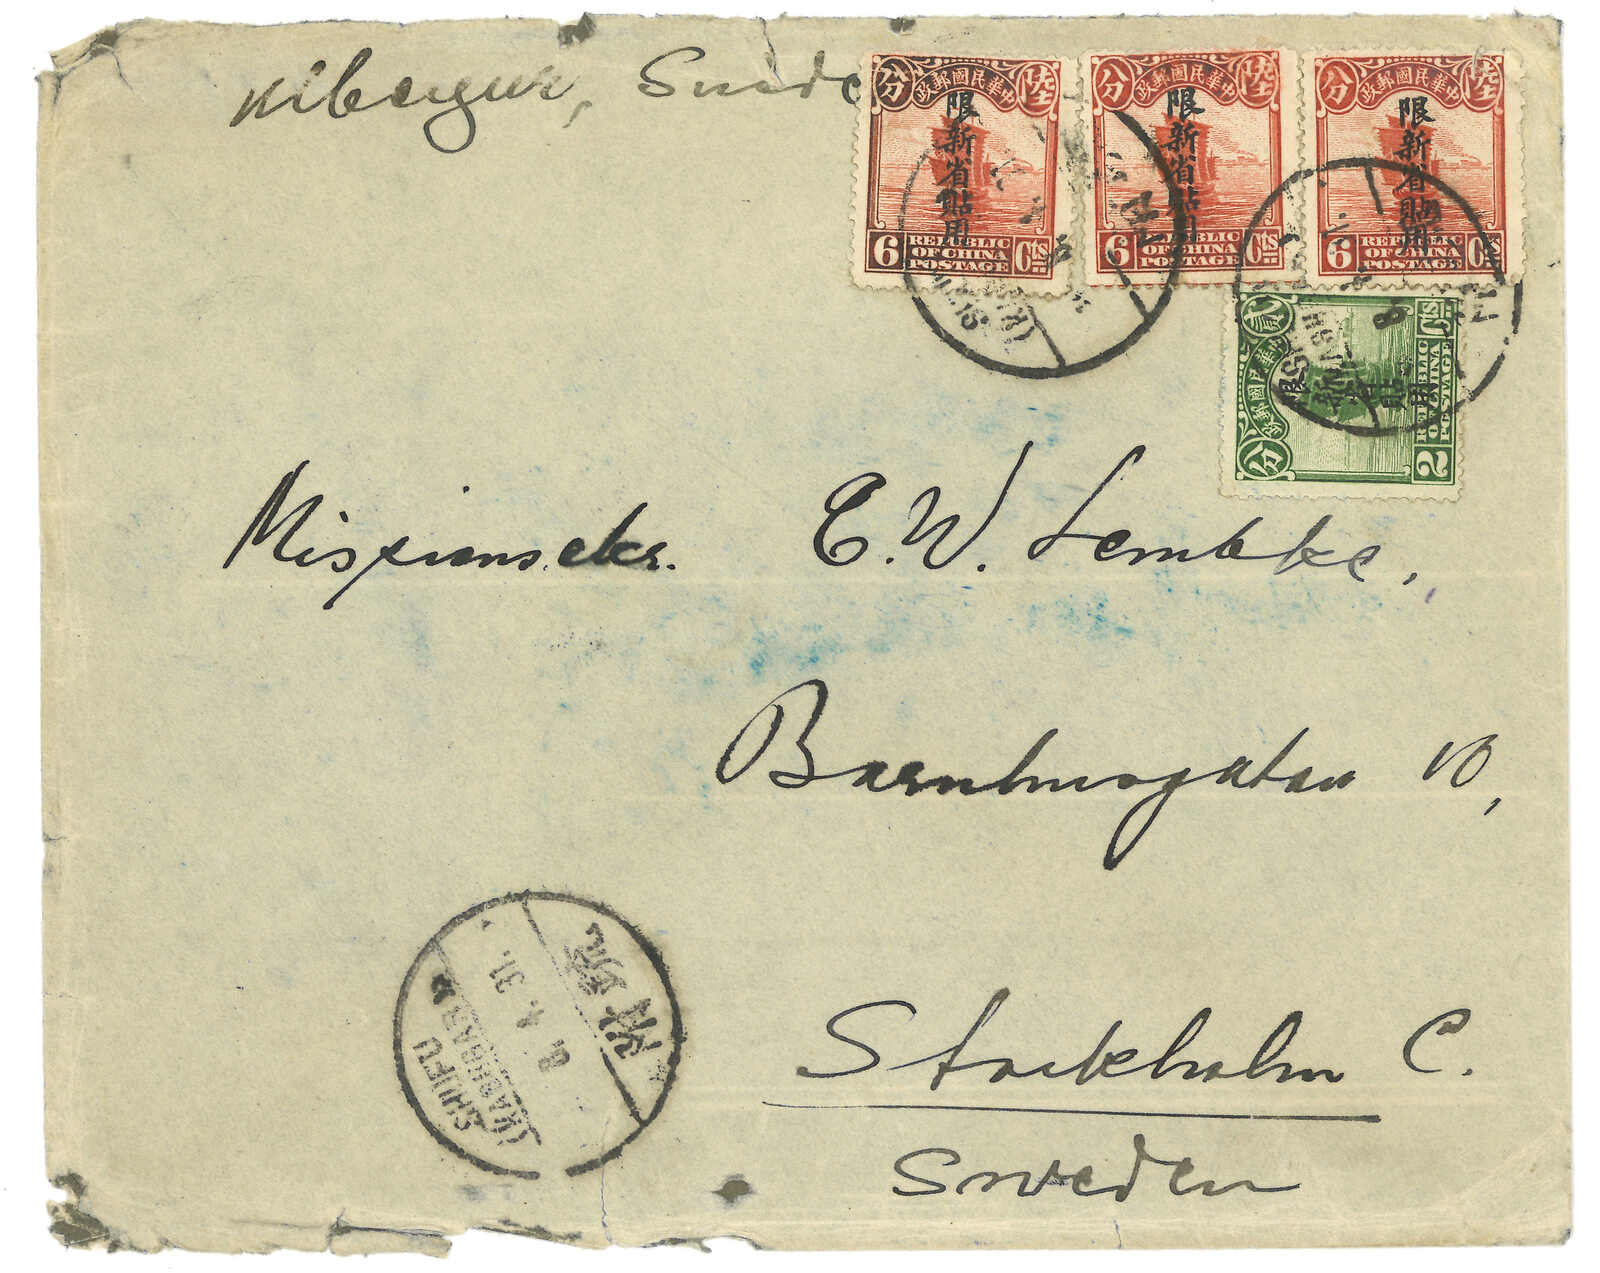 Suède
分 政郵國民華中 陸
限新省貼用
6 REPUBLIC OF CHINA POSTAGE Cts
分 政郵國民華中 陸
限新省貼用
6 REPUBLIC OF CHINA POSTAGE Cts
分 政郵國民華中 陸
限新省貼用
6 REPUBLIC OF CHINA POSTAGE Cts
分 政郵國民華中 貳
限新省貼用
2 REPUBLIC OF CHINA POSTAGE Cts
Missionsekr. C. W. Lembke,
Barnhusgatan 10,
Stockholm C.
Sweden
SHUFU
(KASHGAR)
8. 4. 31.
疏附